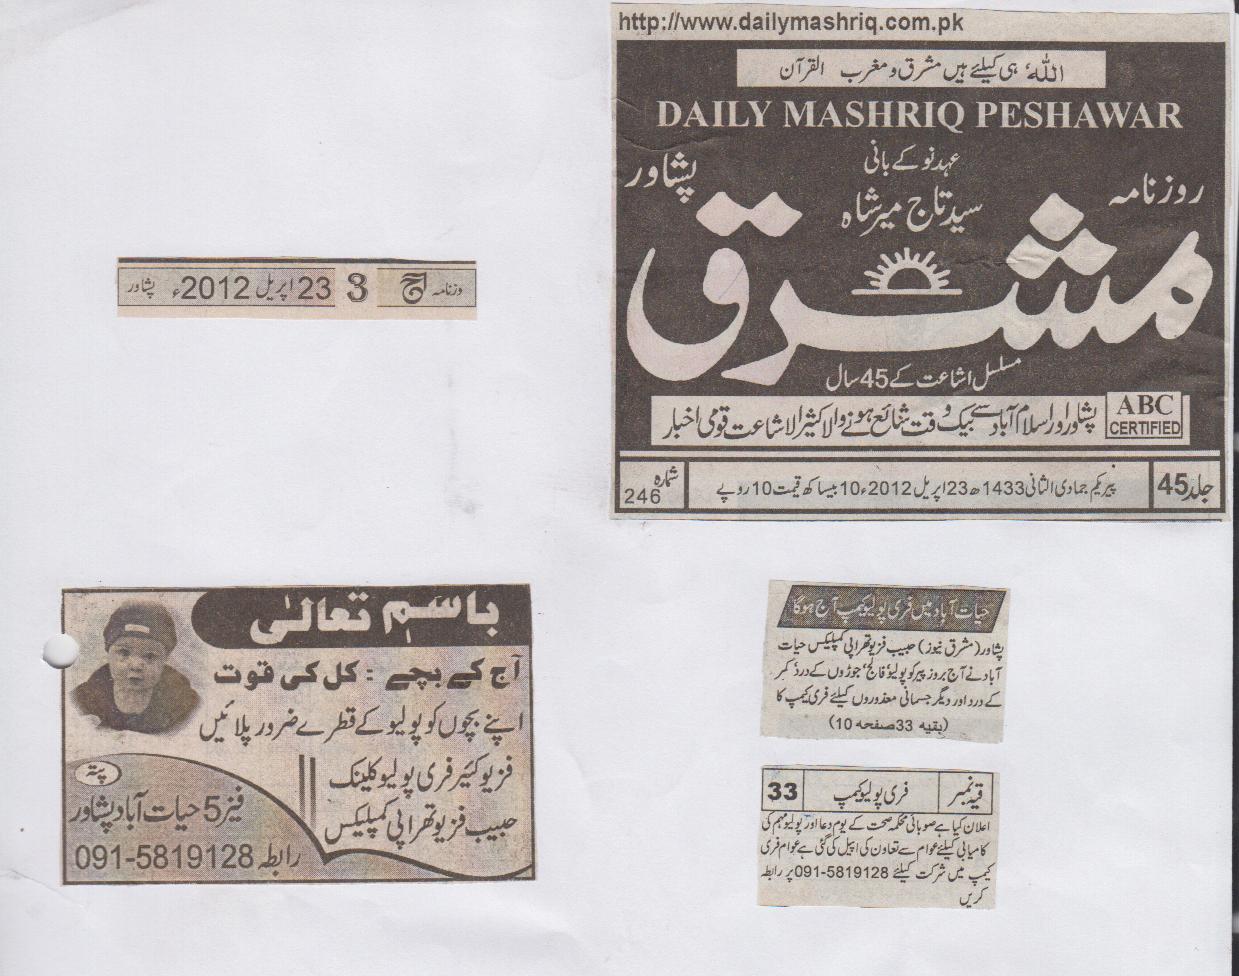 http://www.dailymashriq.com.pk
اللہ ہی کیلئے ہیں مشرق و مغرب القرآن
DAILY MASHRIQ PESHAWAR
عہد نو کے بانی
سید تاج میر شاہ
روزنامہ
مشرق
پشاور
مسلسل اشاعت کے 45 سال
پشاور اور اسلام آباد سے بیک وقت شائع ہونے والا کثیر الاشاعت قومی اخبار
ABC
CERTIFIED
جلد 45
پیر یکم جمادی الثانی 1433ھ 23 اپریل 2012ء 10 بیساکھ قیمت 10 روپے
شمارہ
246
وزنامہ آج 3 23 اپریل 2012ء پشاور
باسم تعالیٰ
آج کے بچے : کل کی قوت
اپنے بچوں کو پولیو کے قطرے ضرور پلائیں
فزیو کئیر فری پولیو کلینک
حبیب فزیوتھراپی کمپلیکس
پتہ
فیز 5 حیات آباد پشاور
رابطہ 091-5819128
حیات آباد میں فری پولیو کیمپ آج ہوگا
پشاور (مشرق نیوز) حبیب فزیوتھراپی کمپلیکس حیات
آباد نے آج بروز پیر کو پولیو، فالج، جوڑوں کے درد، کمر
کے درد اور دیگر جسمانی معذوروں کیلئے فری کیمپ کا
(بقیہ 33 صفحہ 10)
بقیہ نمبر
فری پولیو کیمپ
33
اعلان کیا ہے صوبائی محکمہ صحت کے یوم دعا اور پولیو مہم کی
کامیابی کیلئے عوام سے تعاون کی اپیل کی گئی ہے عوام فری
کیمپ میں شرکت کیلئے 091-5819128 پر رابطہ
کریں